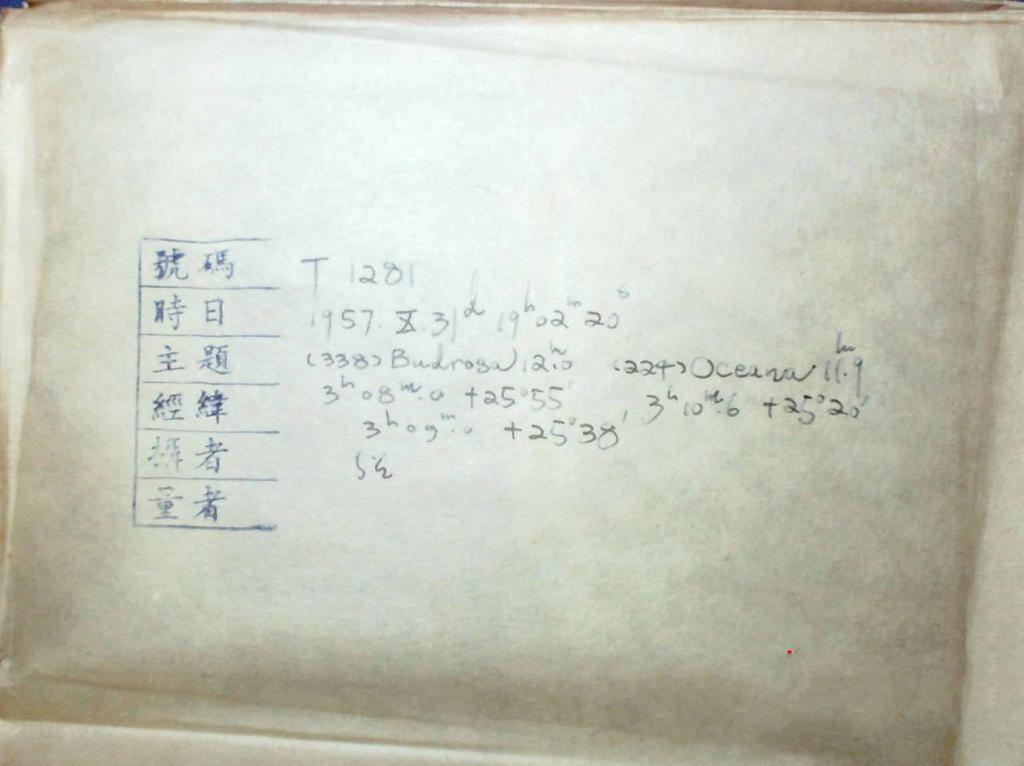 號碼 T 1281
時日 1957. X. 31ᵈ 19ʰ02ᵐ20ˢ
主題 (338) Budrosa 12ᵐ.0 (224) Oceana 11ᵐ.9
經緯 3ʰ08ᵐ.0 +25°55′ 3ʰ10ᵐ.6 +25°20′
3ʰ09ᵐ.0 +25°38′
攝者
量者